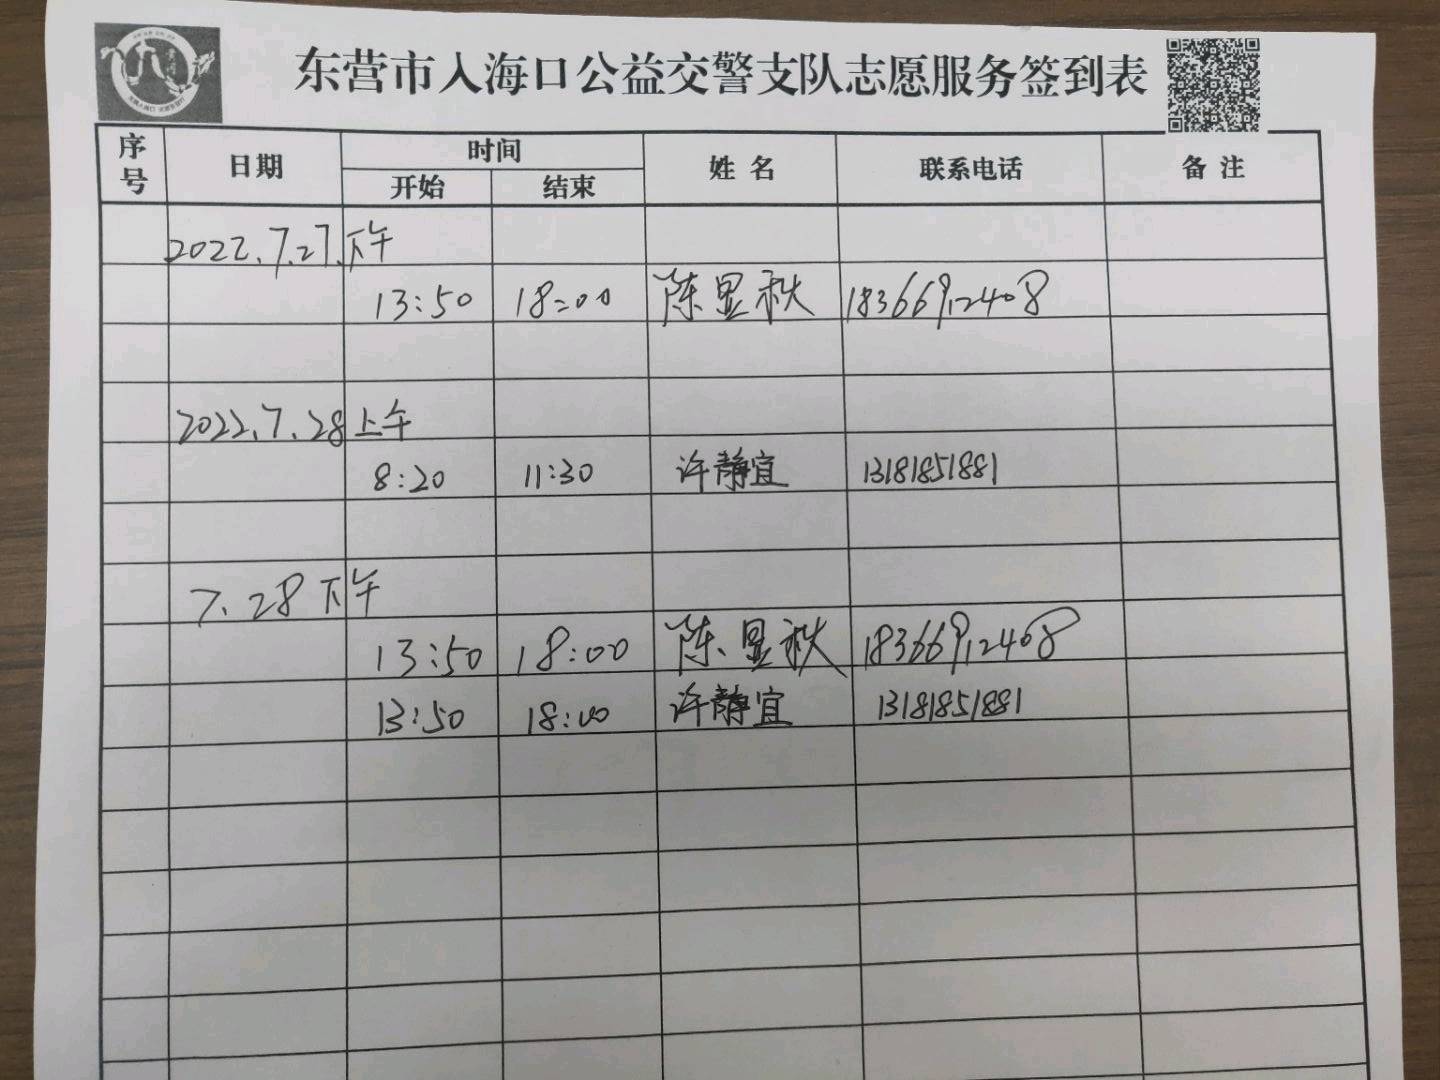 东营市入海口公益交警支队志愿服务签到表
序号 日期 时间 姓名 联系电话 备注
开始 结束
2022.7.27.下午
13:50 18:00 陈显秋 18366912408
2022.7.28 上午
8:20 11:30 许静宜 13181851881
7.28 下午
13:50 18:00 陈显秋 18366912408
13:50 18:00 许静宜 13181851881